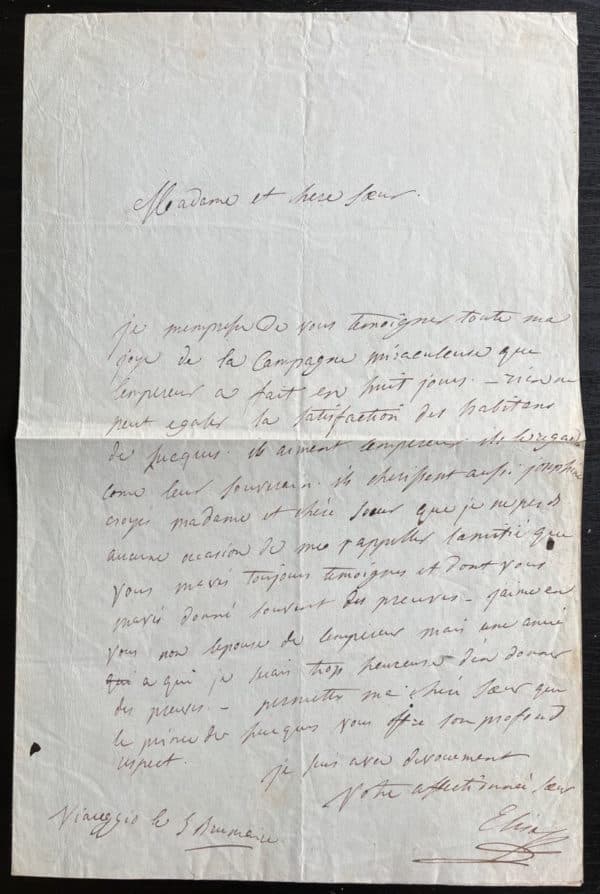 Madame et chere Sœur.
je mempresse de vous temoigner toute ma
joye de la Campagne miraculeuse que
lempereur a fait en huit jours. – rien ne
peut egaler la satisfaction des habitans
de Lucques. ils aiment lempereur ils le regarde
come leur Souverain. ils cherissent aussi josephine
croyes madame et chère Sœur que je ne perds
aucune occasion de me rappeller lamitié que
vous mavés toujours temoignes et dont vous
mavés donné souvent des preuves – jaime en
vous non lepouse de lempereur mais une amie
qui a qui je serais trop heureuse den donner
des preuves. – permettes ma chère Sœur que
le prince de Lucques vous offre son profond
respect.
je suis avec devouement
Votre affectionnée Sœur
Elisa
Viareggio le 5 Brumaire